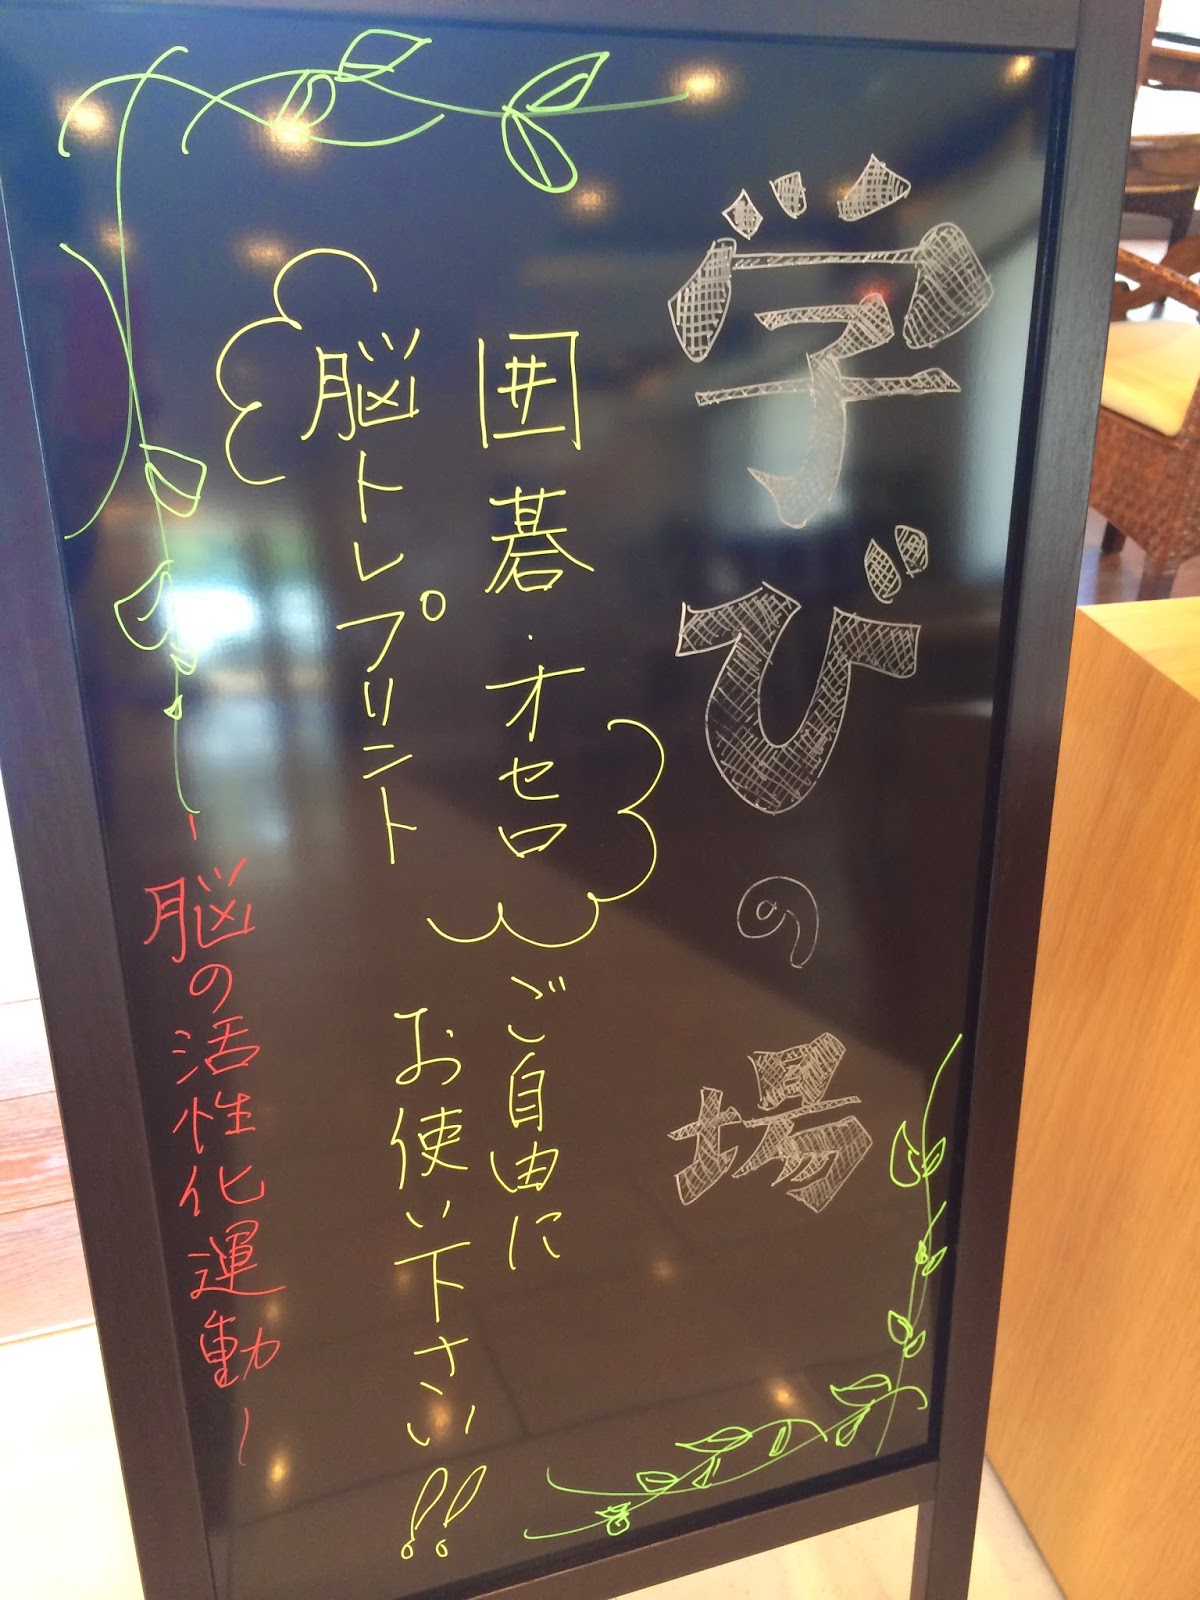 学びの場
囲碁・オセロ
脳トレプリント
ご自由に
お使い下さい!!
-脳の活性化運動-